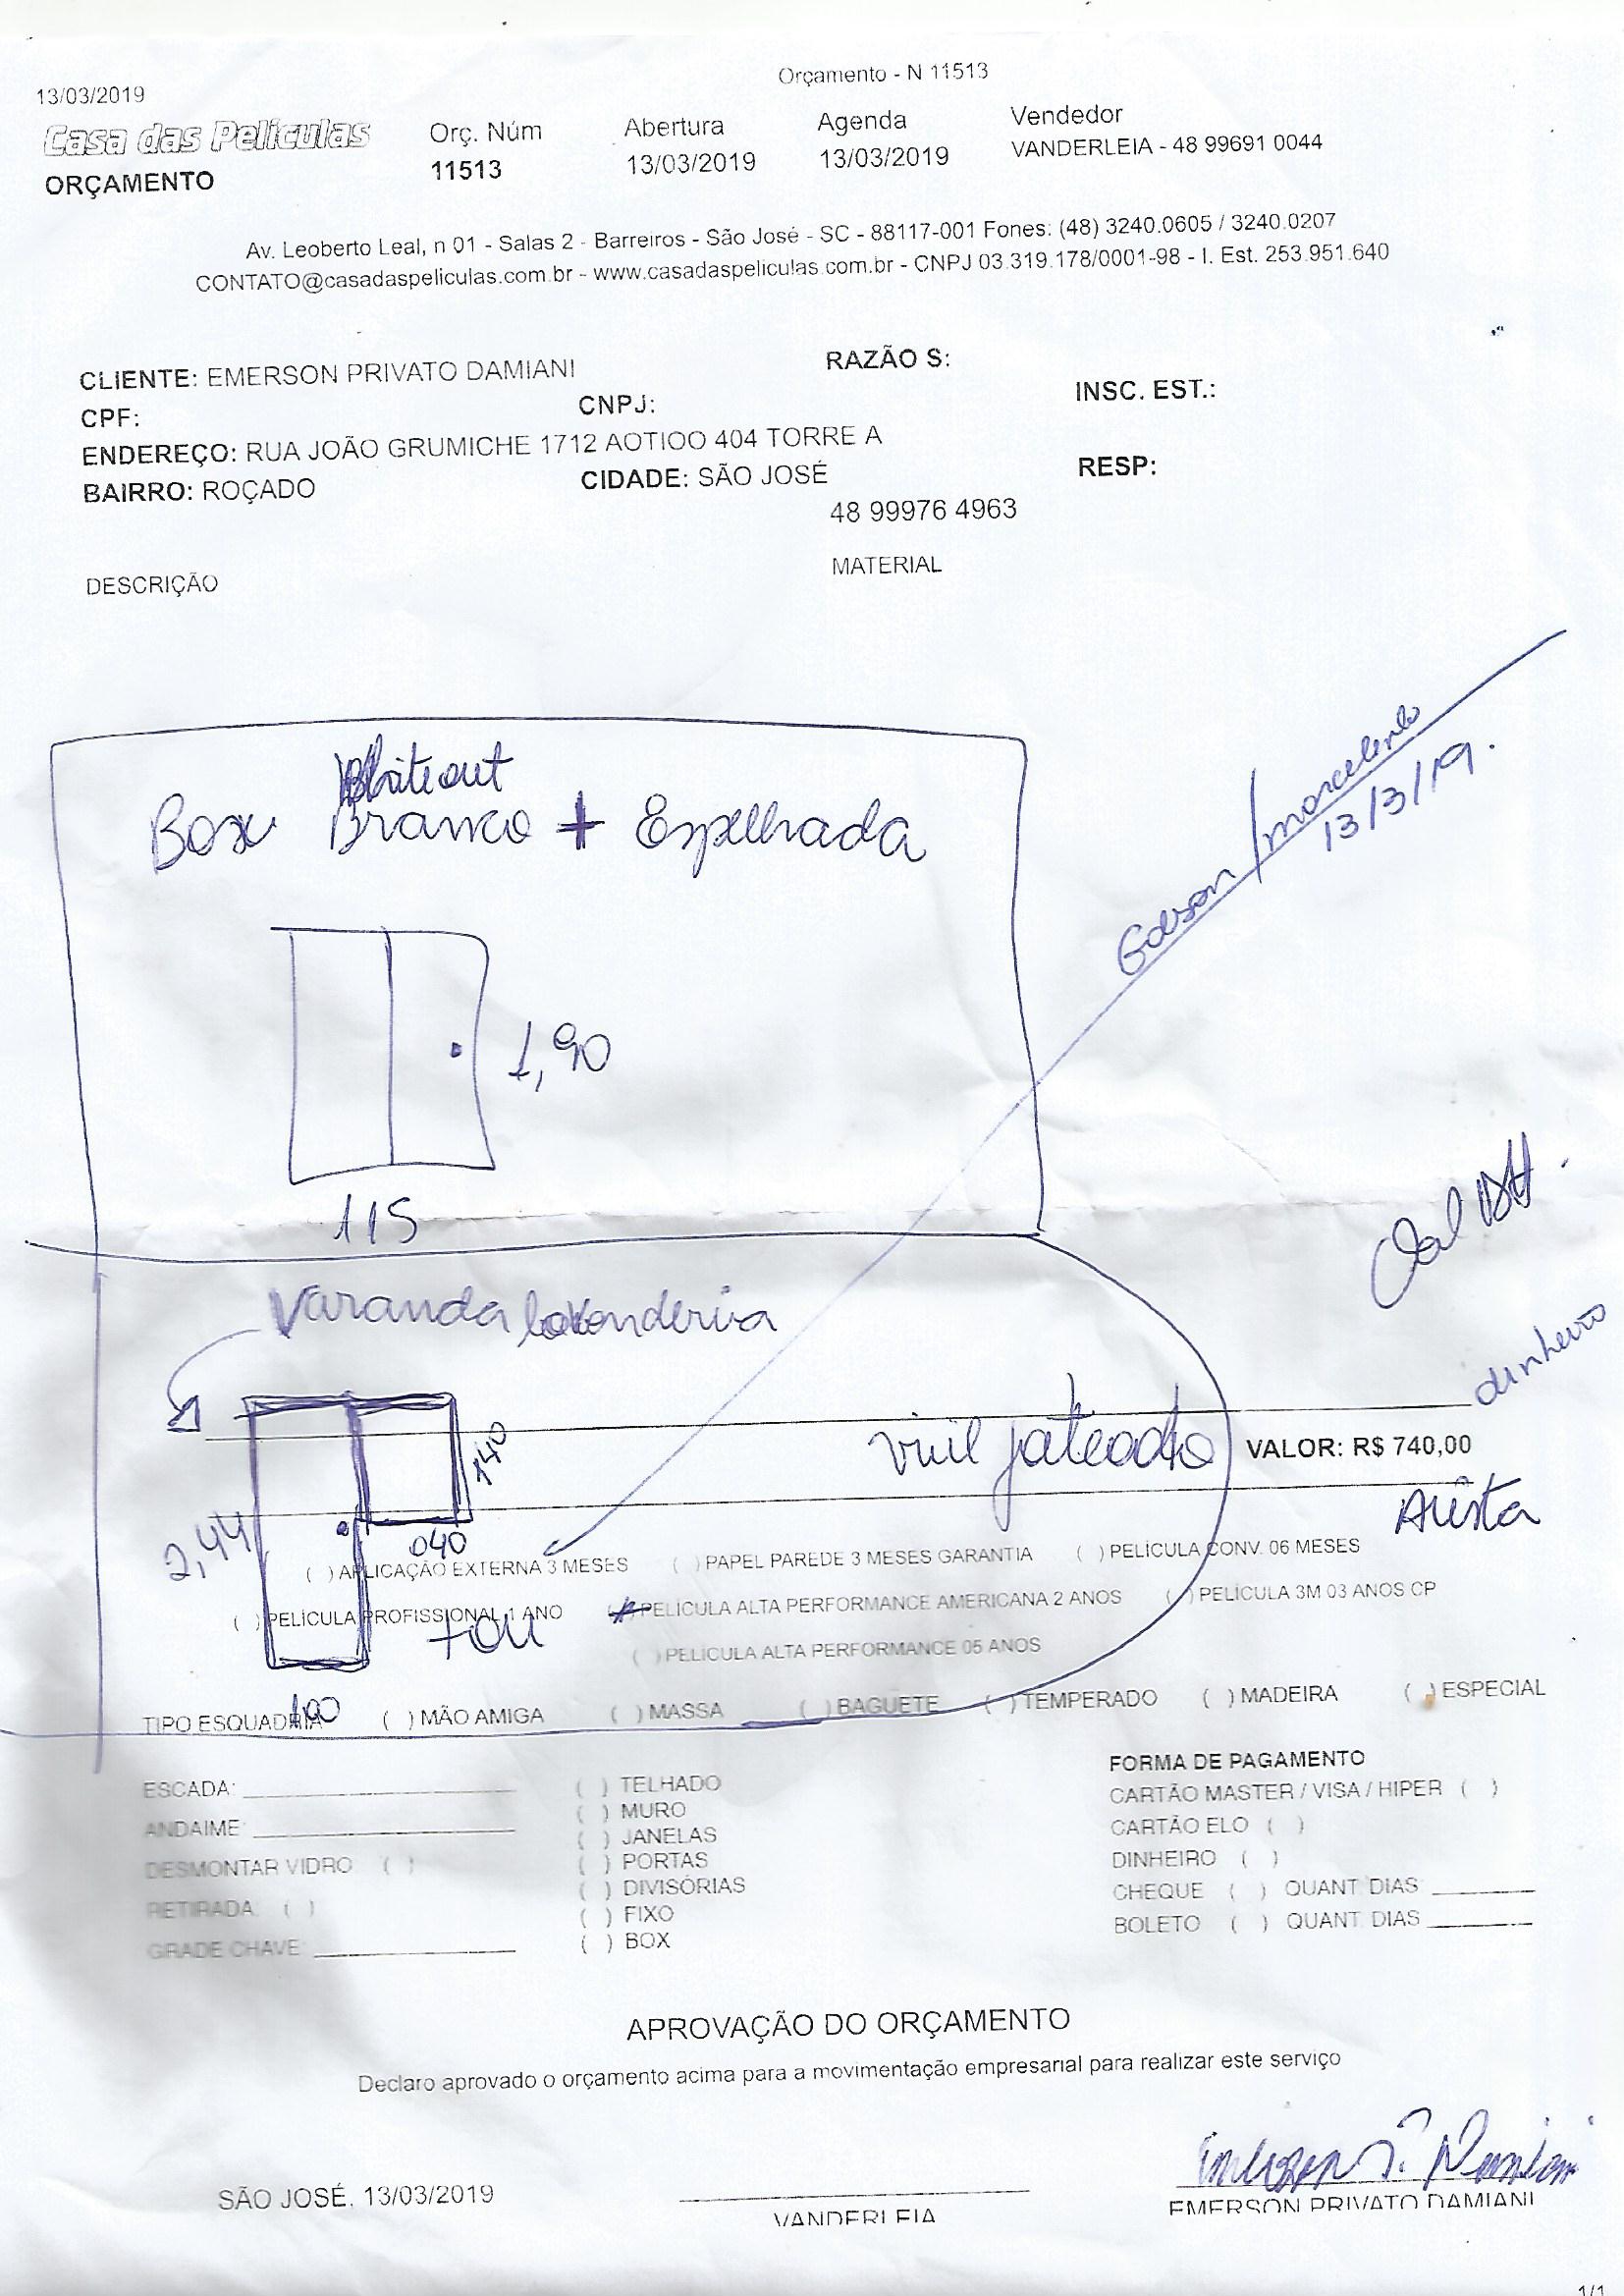 Orçamento - N 11513
13/03/2019
Casa das Películas
ORÇAMENTO
Orç. Núm
11513
Abertura
13/03/2019
Agenda
13/03/2019
Vendedor
VANDERLEIA - 48 99691 0044
Av. Leoberto Leal, n 01 - Salas 2 - Barreiros - São José - SC - 88117-001 Fones: (48) 3240.0605 / 3240.0207
CONTATO@casadaspeliculas.com.br - www.casadaspeliculas.com.br - CNPJ 03.319.178/0001-98 - I. Est. 253.951.640
CLIENTE: EMERSON PRIVATO DAMIANI
RAZÃO S:
CPF:
CNPJ:
INSC. EST.:
ENDEREÇO: RUA JOÃO GRUMICHE 1712 AOTIOO 404 TORRE A
BAIRRO: ROÇADO
CIDADE: SÃO JOSÉ
RESP:
48 99976 4963
DESCRIÇÃO
MATERIAL
Whiteout
Box Branco + Espelhada
13/3/19.
1,90
115
Varanda lavanderia
dinheiro
140
vinil jateado
VALOR: R$ 740,00
2,44
040
( ) APLICAÇÃO EXTERNA 3 MESES ( ) PAPEL PAREDE 3 MESES GARANTIA ( ) PELÍCULA CONV. 06 MESES
( ) PELÍCULA PROFISSIONAL 1 ANO ( ) PELÍCULA ALTA PERFORMANCE AMERICANA 2 ANOS ( ) PELÍCULA 3M 03 ANOS CP
( ) PELÍCULA ALTA PERFORMANCE 05 ANOS
1,00
TIPO ESQUADRIA ( ) MÃO AMIGA ( ) MASSA ( ) BAGUETE ( ) TEMPERADO ( ) MADEIRA ( ) ESPECIAL
ESCADA:
ANDAIME:
DESMONTAR VIDRO ( )
RETIRADA: ( )
GRADE CHAVE:
( ) TELHADO
( ) MURO
( ) JANELAS
( ) PORTAS
( ) DIVISÓRIAS
( ) FIXO
( ) BOX
FORMA DE PAGAMENTO
CARTÃO MASTER / VISA / HIPER ( )
CARTÃO ELO ( )
DINHEIRO ( )
CHEQUE ( ) QUANT. DIAS
BOLETO ( ) QUANT. DIAS
APROVAÇÃO DO ORÇAMENTO
Declaro aprovado o orçamento acima para a movimentação empresarial para realizar este serviço
SÃO JOSÉ, 13/03/2019
VANDERLEIA
EMERSON PRIVATO DAMIANI
1/1